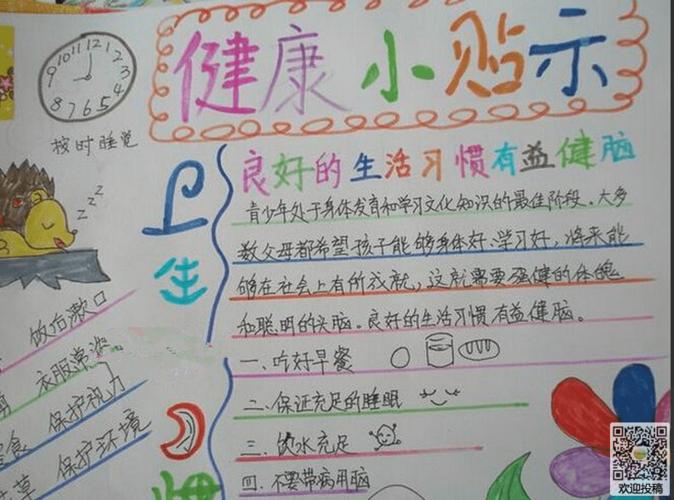 健康小贴示
10 11 12 1 2 3 4 5 6 7 8 9
按时睡觉
zzz
卫生
良好的生活习惯有益健脑
青少年处于身体发育和学习文化知识的最佳阶段。大多
数父母都希望孩子能够身体好、学习好,将来能
够在社会上有所成就,这就需要强健的体魄
和聪明的头脑。良好的生活习惯有益健脑。
一、吃好早餐
二、保证充足的睡眠
三、饮水充足
四、不要带病用脑
饭后漱口
衣服常洗
食 保护视力
草 保护环境
欢迎投稿